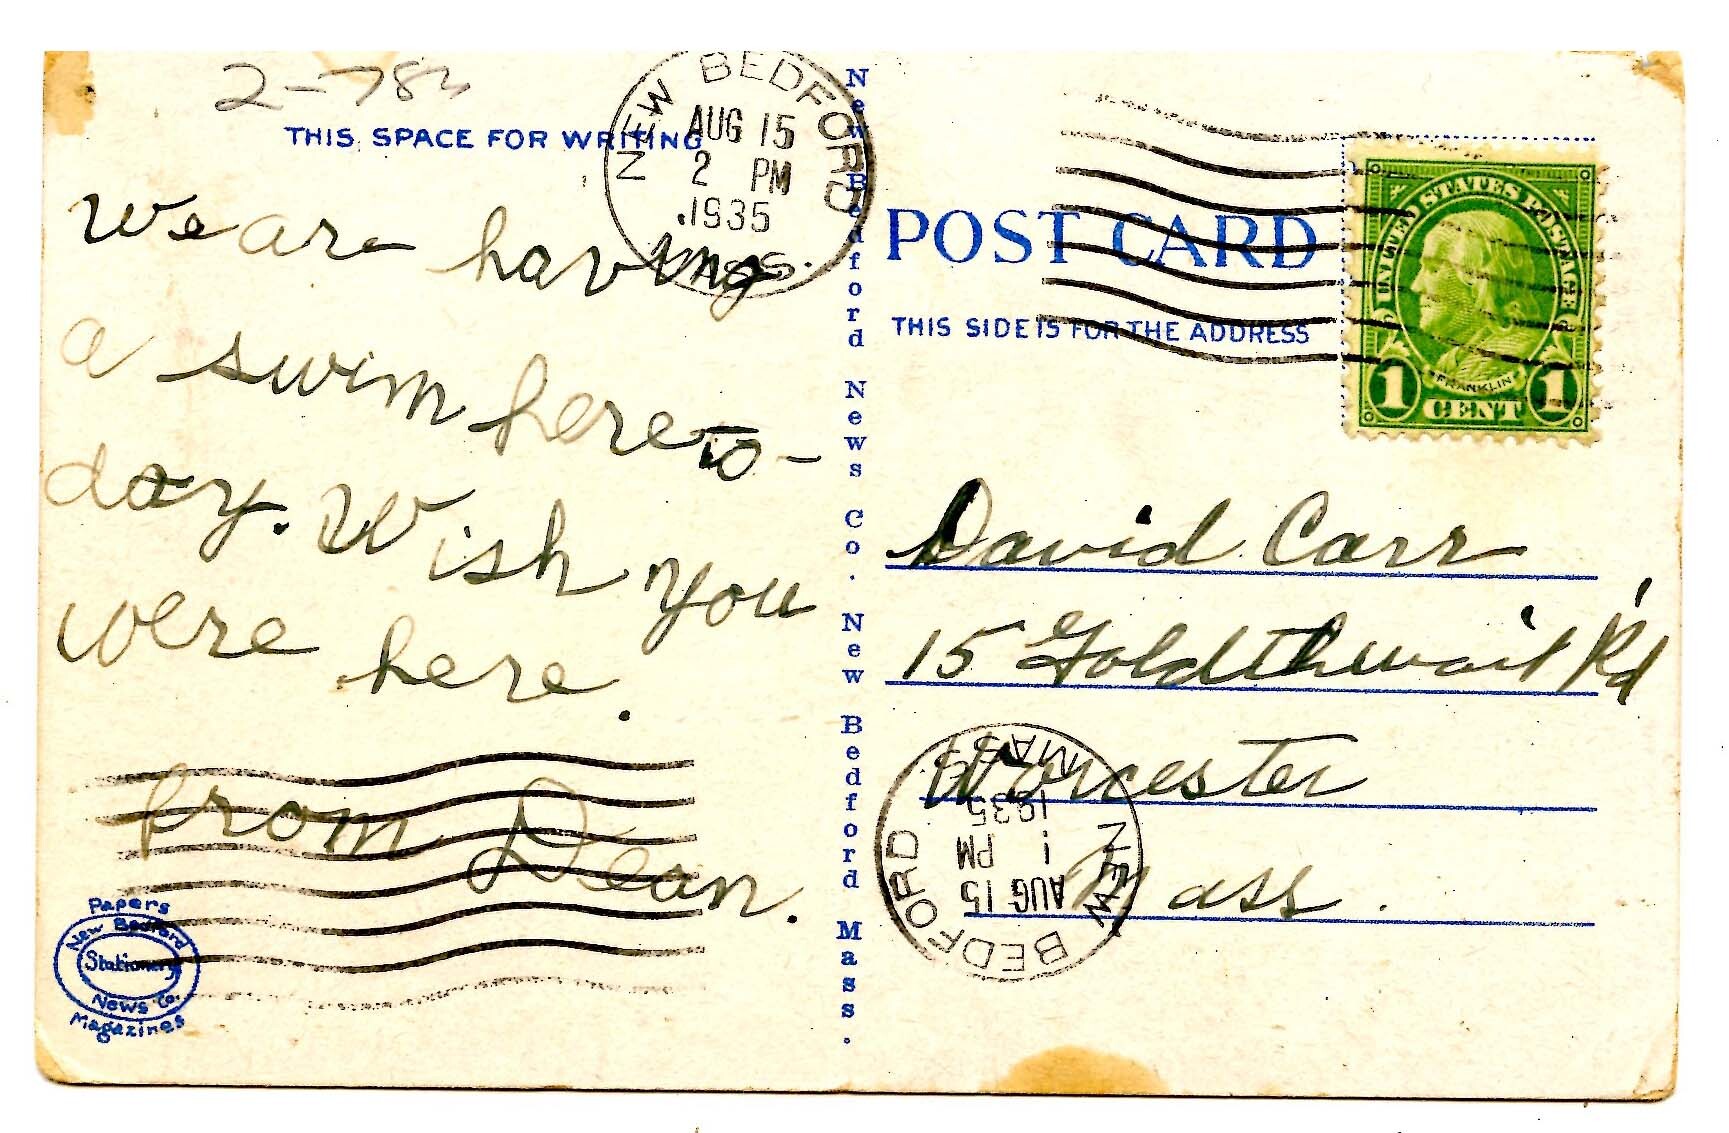 2-783
THIS SPACE FOR WRITING
NEW BEDFORD
AUG 15
2 PM
1935
MASS.
We are having
a swim here to-
day. Wish you
were here.
from Dean.
Papers
New Bedford
Stationery
News Co.
Magazines
New Bedford News Co. New Bedford Mass.
POST CARD
THIS SIDE IS FOR THE ADDRESS
UNITED STATES POSTAGE
FRANKLIN
1 CENT 1
David Carr
15 Goldthwait Rd
Worcester
Mass.
NEW BEDFORD
AUG 15
1 PM
1935
MASS.